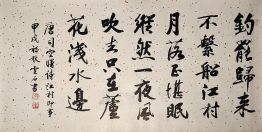 钓罷歸来
不繫船江村
月落正堪眠
縱然一夜風
吹去只在蘆
花淺水邊
唐司空曙詩江村即事
甲戌
書